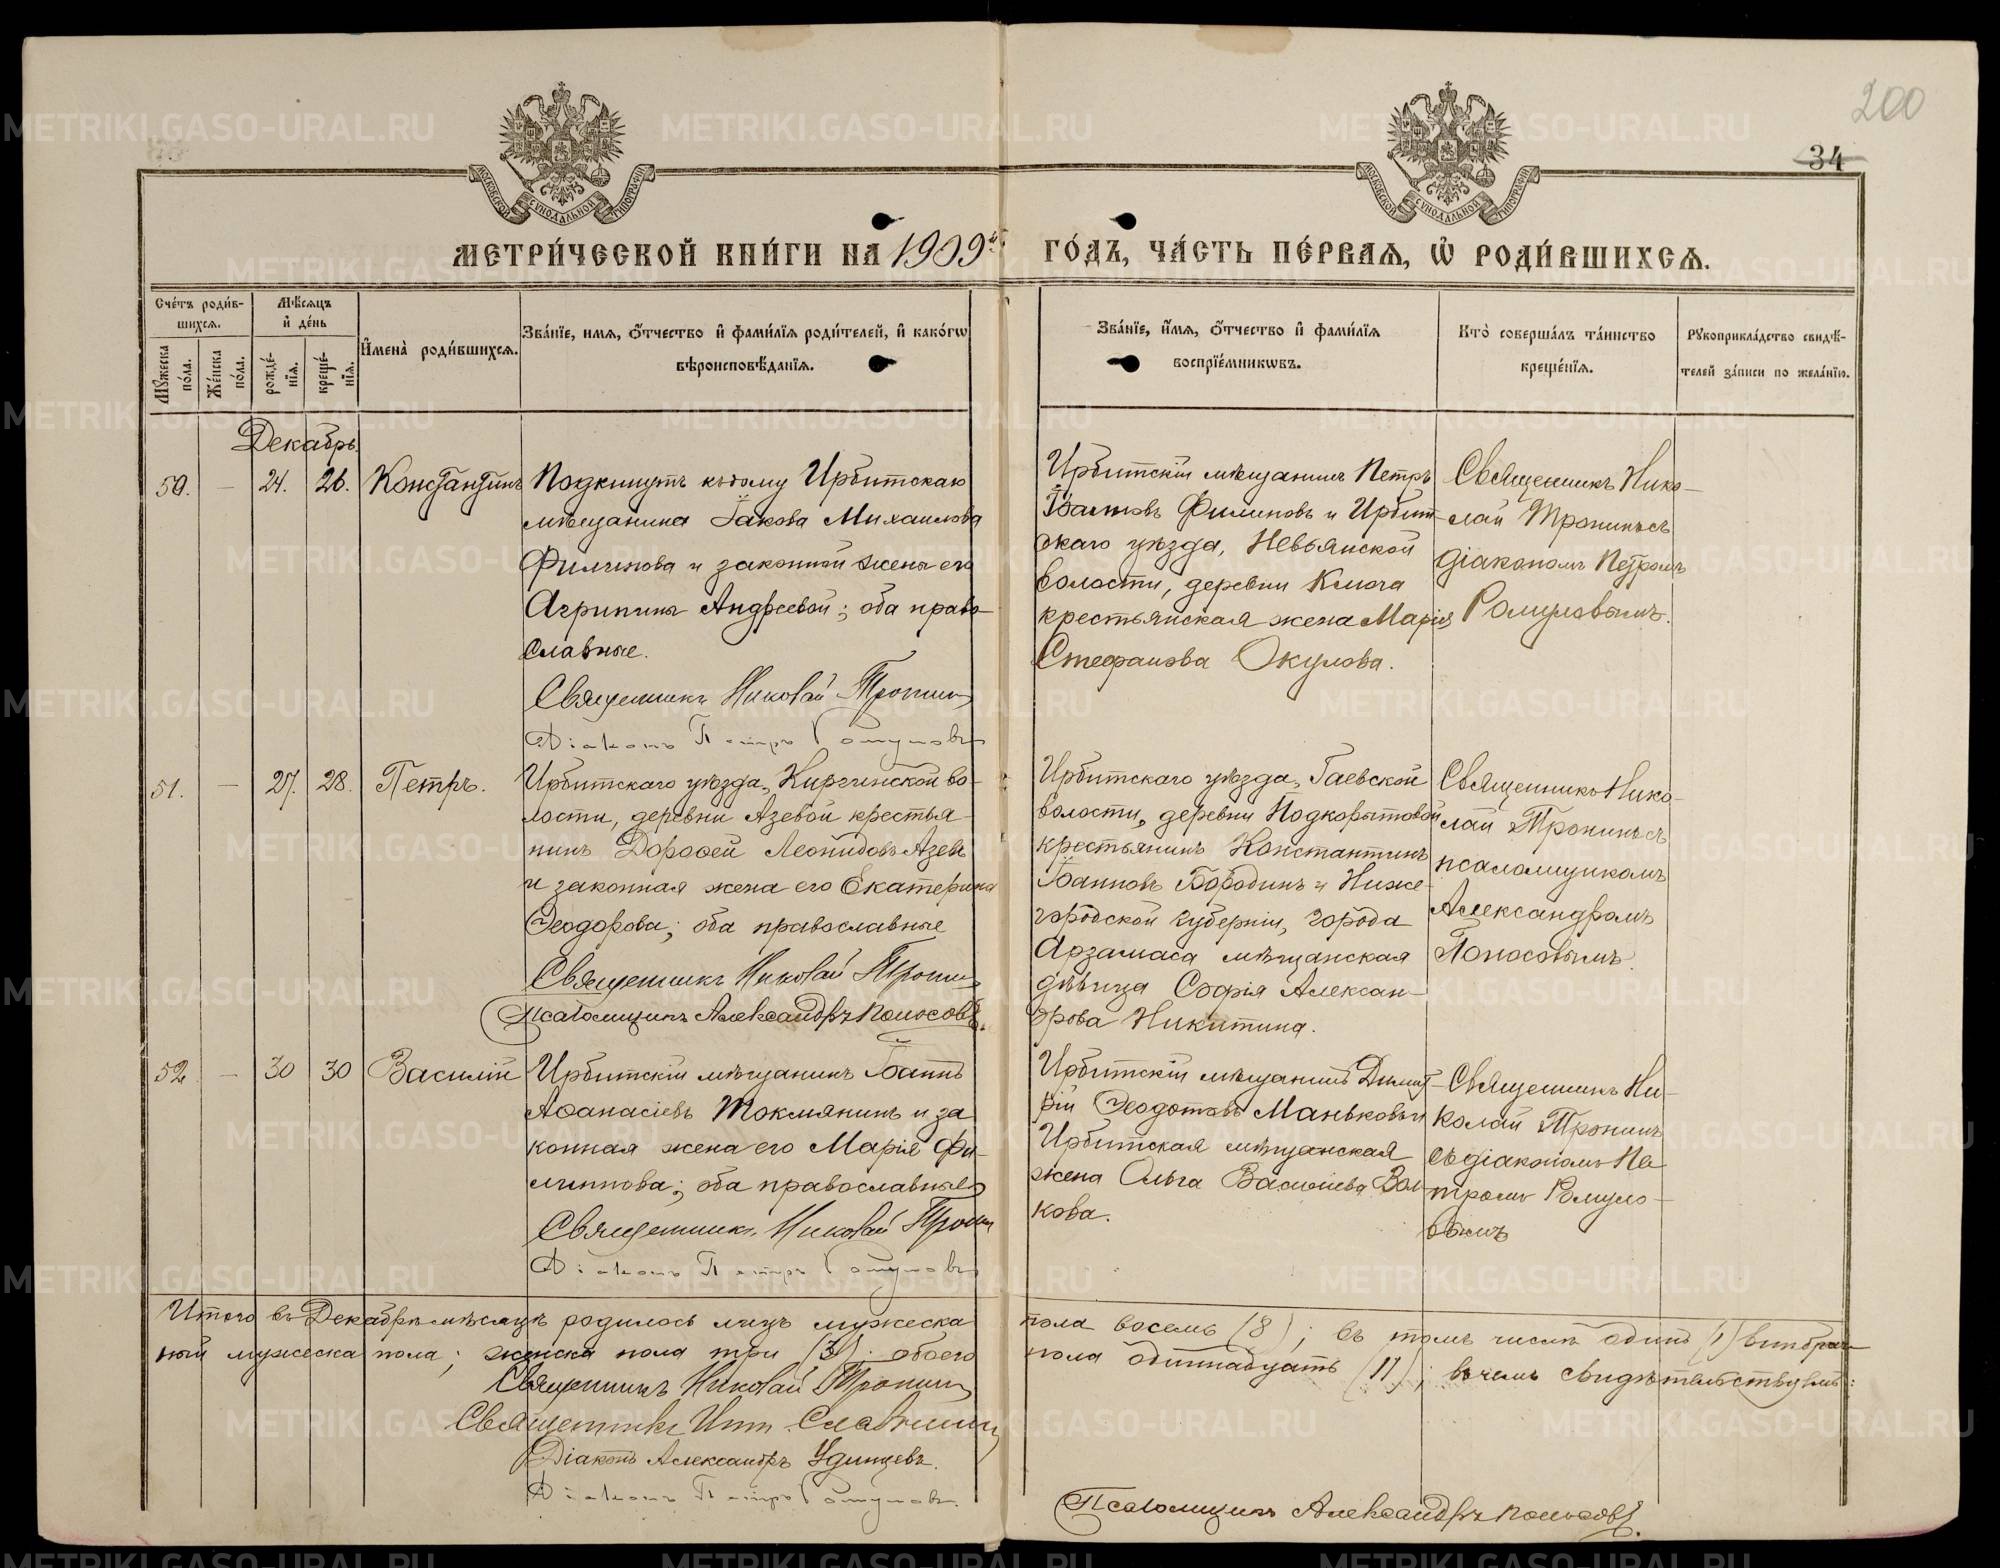 200
34
МОСКОВСКОЙ СѴНОДАЛЬНОЙ ТИПОГРАФІИ
МОСКОВСКОЙ СѴНОДАЛЬНОЙ ТИПОГРАФІИ
МЕТРИ́ЧЕСКОЙ КНИ́ГИ НА 1909й ГО́ДЪ, ЧА́СТЬ ПЕ́РВАЯ, Ѡ РОДИ́ВШИХСЯ.
Сче́тъ роди́в-
шихся.
Мѣ́сяцъ
и де́нь
Мꙋжеска по́ла.
Же́нска по́ла.
рожде́-
нія.
креще́-
нія.
Имена̀ роди́вшихся.
Зва́ніе, имя, о́тчество и фами́лія роди́телей, и како́гѡ
вѣроисповѣ́данія.
Зва́ніе, и́мя, о́тчество и фами́лія
воспріе́мникѡвъ.
Кто̀ соверша́лъ та́инство
креще́нія.
Рꙋкоприкла́дство свидѣ́-
телей за́писи по жела́нію.
Декабрь.
50.
—
24.
26.
Константинъ
Подкинутъ къ дому Ирбитскаго
мѣщанина Іакова Михаилова
Филинова и законной жены его
Агрипины Андреевой; оба право-
славные.
Священникъ Николай Тронинъ
Діаконъ Петръ Ромуловъ
Ирбитскій мѣщанинъ Петръ
Іаковъ Филиновъ и Ирбит-
скаго уѣзда, Невьянской
волости, деревни Ключа
крестьянская жена Марія
Стефанова Окулова.
Священникъ Нико-
лай Тронинъ съ
діакономъ Петромъ
Ромуловымъ.
51.
—
27.
28.
Петръ.
Ирбитскаго уѣзда, Киргинской во-
лости, деревни Азевой крестья-
нинъ Дороѳей Леонидовъ Азевъ
и законная жена его Екатерина
Ѳеодорова; оба православные
Священникъ Николай Тронинъ
Псаломщикъ Александръ Поносовъ.
Ирбитскаго уѣзда, Гаевской
волости, деревни Подкорытовой
крестьянинъ Константинъ
Іоанновъ Бородинъ и Ниже-
городской губерніи, города
Арзамаса мѣщанская
дѣвица Софія Алексан-
дрова Никитина.
Священникъ Нико-
лай Тронинъ съ
псаломщикомъ
Александромъ
Поносовымъ.
52
—
30
30
Василій
Ирбитскій мѣщанинъ Іоаннъ
Аѳанасіевъ Токмянинъ и за-
конная жена его Марія Фи-
липпова; оба православные
Священникъ Николай Тронинъ
Діаконъ Петръ Ромуловъ
Ирбитскій мѣщанинъ Димит-
рій Ѳеодотовъ Маньковъ и
Ирбитская мѣщанская
жена Ольга Василіева Вол-
кова.
Священникъ Ни-
колай Тронинъ
съ діакономъ Пе-
тромъ Ромуло-
вымъ
Итого въ Декабрѣ мѣсяцѣ родилось лицъ мужеска пола восемь (8); въ томъ числѣ одинъ (1) внѣбрач-
ный мужеска пола; женска пола три (3); обоего пола одиннадцать (11); въ чемъ свидѣтельствуемъ:
Священникъ Николай Тронинъ
Священникъ Инн. Славнинъ
Діаконъ Александръ Удинцевъ.
Діаконъ Петръ Ромуловъ.
Псаломщикъ Александръ Поносовъ.
METRIKI.GASO-URAL.RU